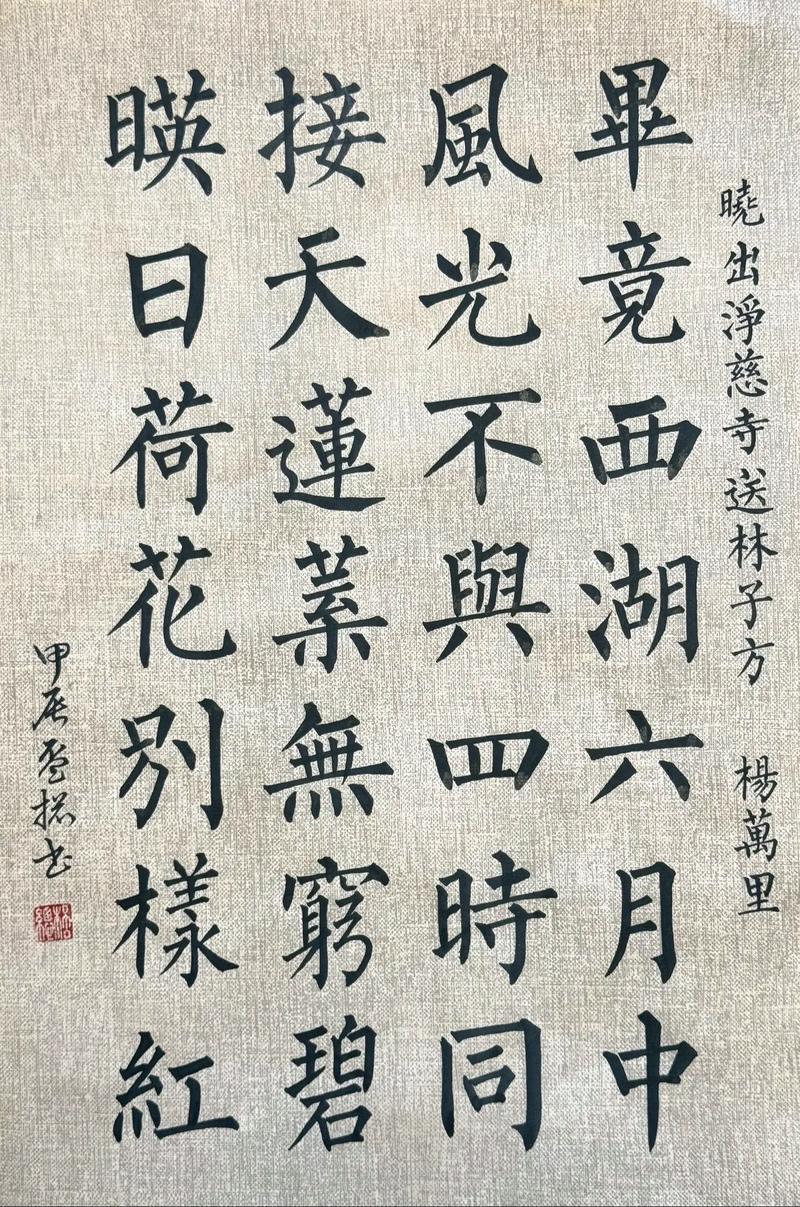 曉出淨慈寺送林子方 楊萬里
畢竟西湖六月中
風光不與四時同
接天蓮葉無窮碧
暎日荷花別樣紅
甲辰書